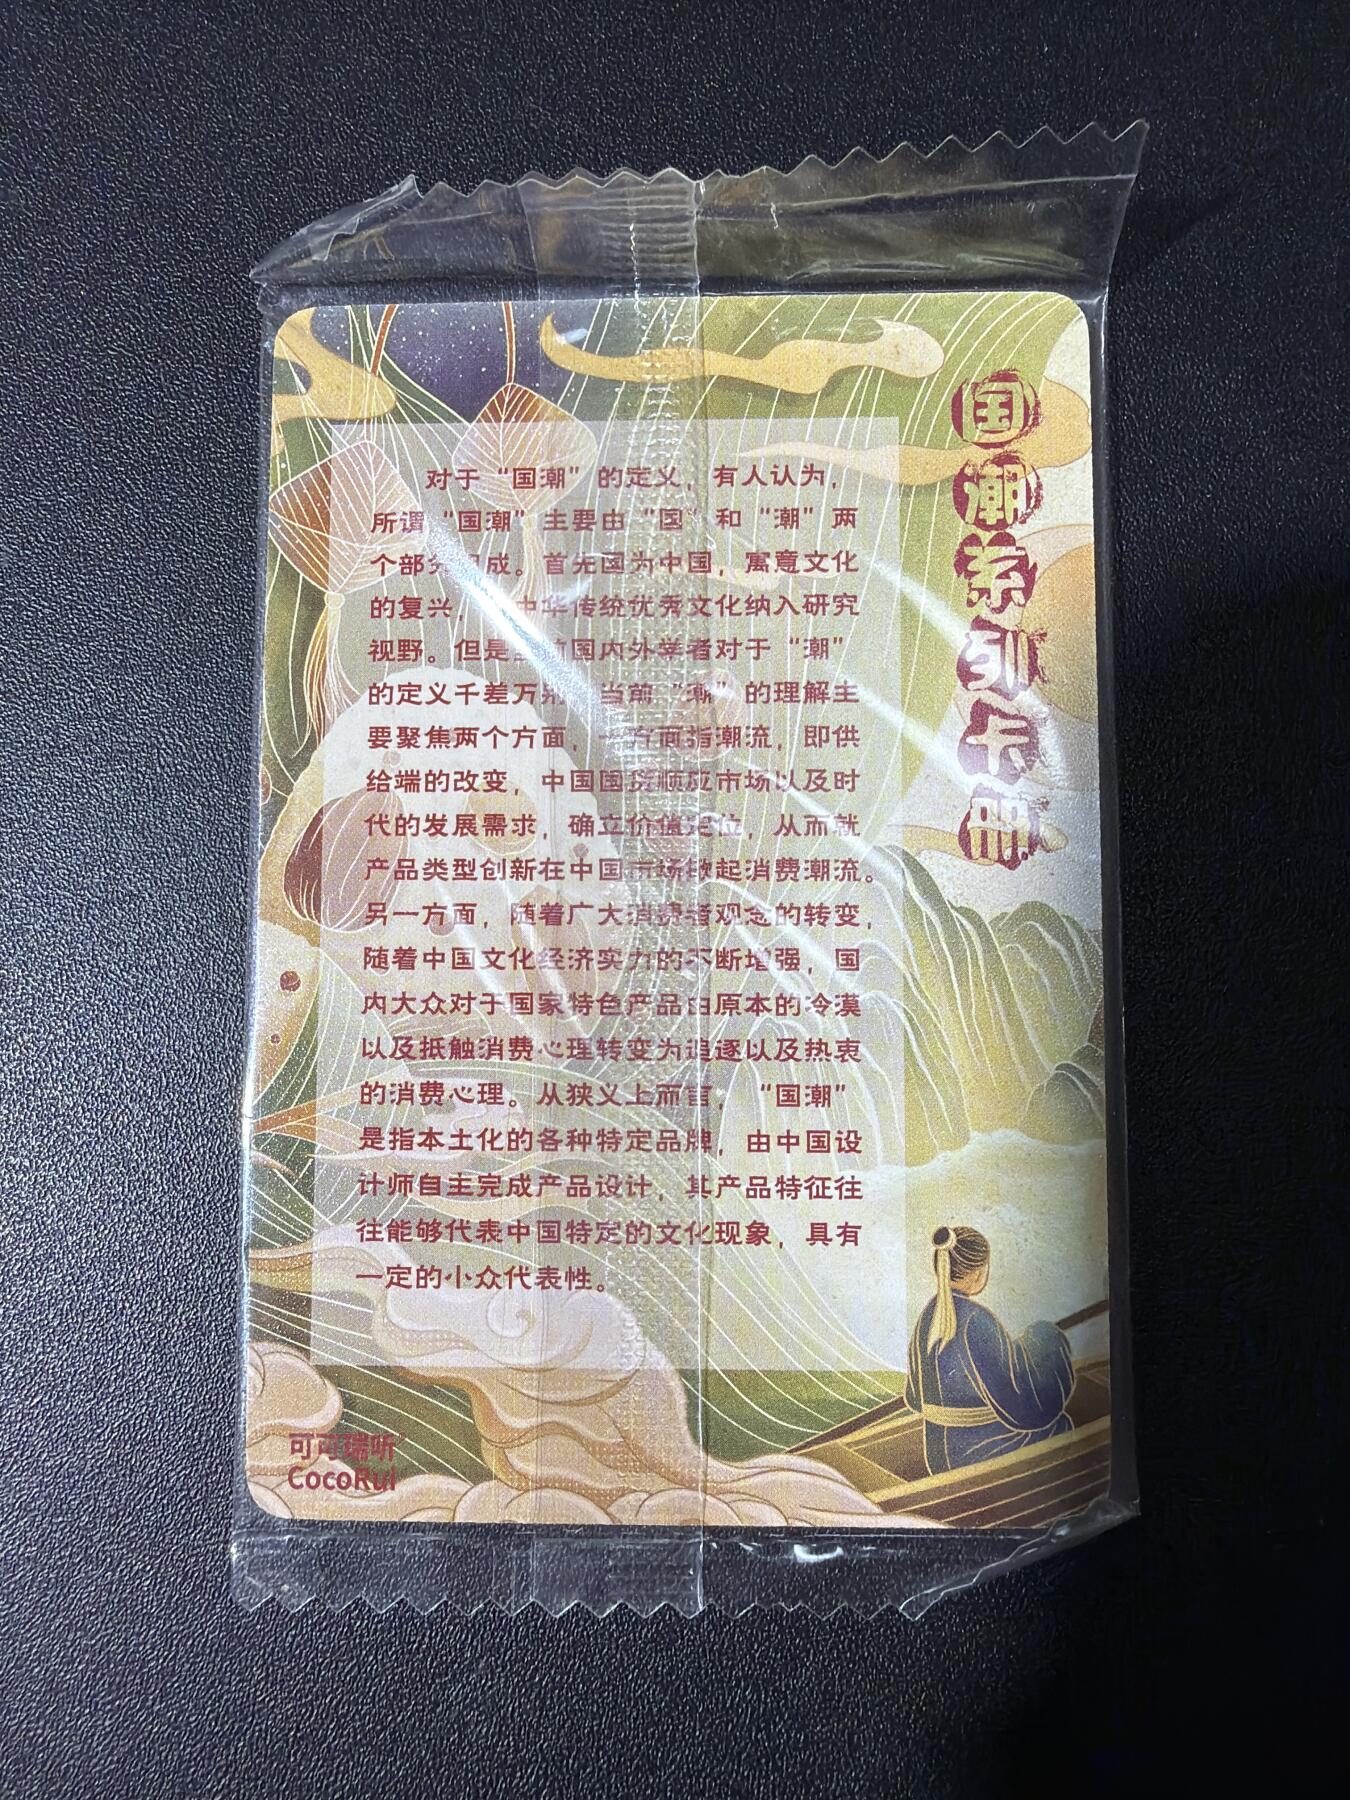 国潮系列卡册
对于“国潮”的定义，有人认为，
所谓“国潮”主要由“国”和“潮”两
个部分组成。首先国为中国，寓意文化
的复兴，中华传统优秀文化纳入研究
视野。但是国内外学者对于“潮”
的定义千差万别 当前“潮”的理解主
要聚焦两个方面，一方面指潮流，即供
给端的改变，中国国货顺应市场以及时
代的发展需求，确立价值定位，从而就
产品类型创新在中国市场掀起消费潮流。
另一方面，随着广大消费者观念的转变，
随着中国文化经济实力的不断增强，国
内大众对于国家特色产品由原本的冷漠
以及抵触消费心理转变为追逐以及热衷
的消费心理。从狭义上而言，“国潮”
是指本土化的各种特定品牌，由中国设
计师自主完成产品设计，其产品特征往
往能够代表中国特定的文化现象，具有
一定的小众代表性。
可可瑞听
CocoRui